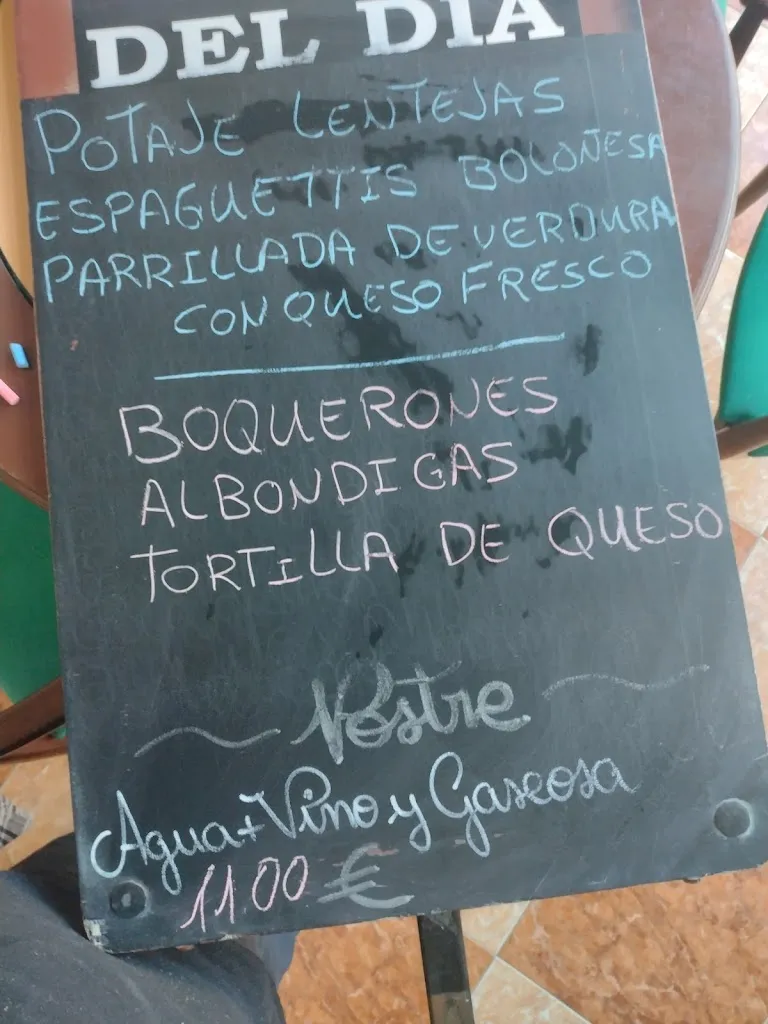 DEL DIA
POTAJE LENTEJAS
ESPAGUETTIS BOLOÑESA
PARRILLADA DE VERDURA
CON QUESO FRESCO
BOQUERONES
ALBONDIGAS
TORTILLA DE QUESO
Postre
Agua+Vino y Gaseosa
1100 €